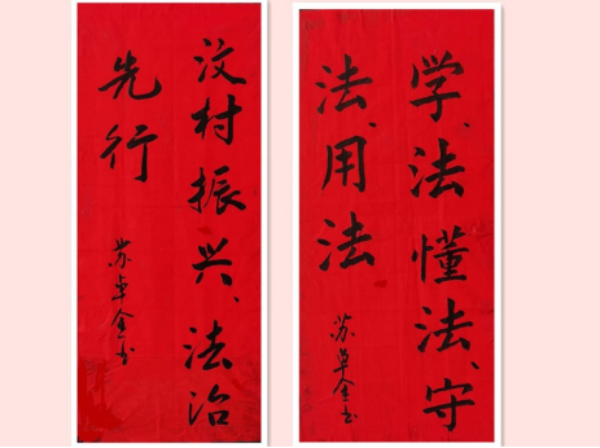 汶村振兴、法治
先行
苏卓金书
学、法懂法、守
法、用法
苏卓金书